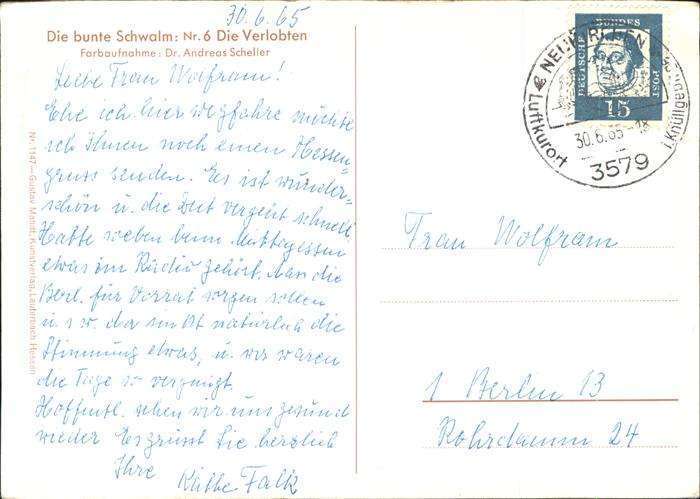 30.6.65
Die bunte Schwalm: Nr. 6 Die Verlobten
Farbaufnahme: Dr. Andreas Scheller
Liebe Frau Wolfram!
Ehe ich hier wegfahre möchte
ich Ihnen noch einen Hessen-
gruss senden. Es ist wunder-
schön u. die Zeit vergeht schnell
Hatte soeben beim Mittagessen
etwas im Radio gehört. dass die
Berl. für Vorrat sorgen sollen
u. s w. da ist natürlich die
Stimmung etwas, u. wir waren
die Tage so vergnügt.
Hoffentl. sehen wir uns gesund
wieder Es grüsst Sie herzlich
Ihre Käthe Falk
Nr. 1147 — Gustav Mandt, Kunstverlag, Lauterbach Hessen
DEUTSCHE BUNDES POST
15
NEUKIRCHEN
Luftkurort
i. Knüllgebirge
30.6.65-18
3579
Frau Wolfram
1 Berlin 13
Rohrdamm 24